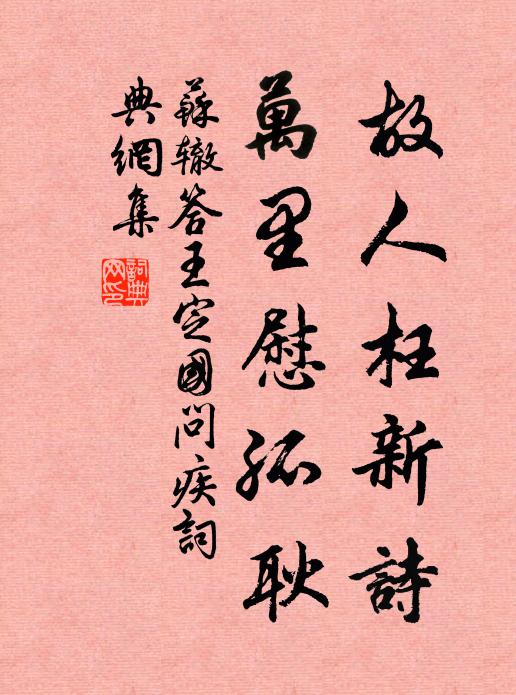 故人枉新詩
萬里慰孤耿
蘇辙答王定國問疾詞
典網集
詞典網印